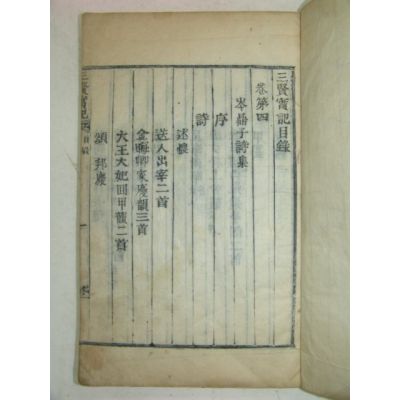 三賢實記目錄
卷第四
岑樓子詩集
序
詩
述懷
送人出宰二首
金晦卿家慶韻三首
大王大妃回甲韻二首
頌邦慶
三賢實記
目錄
一